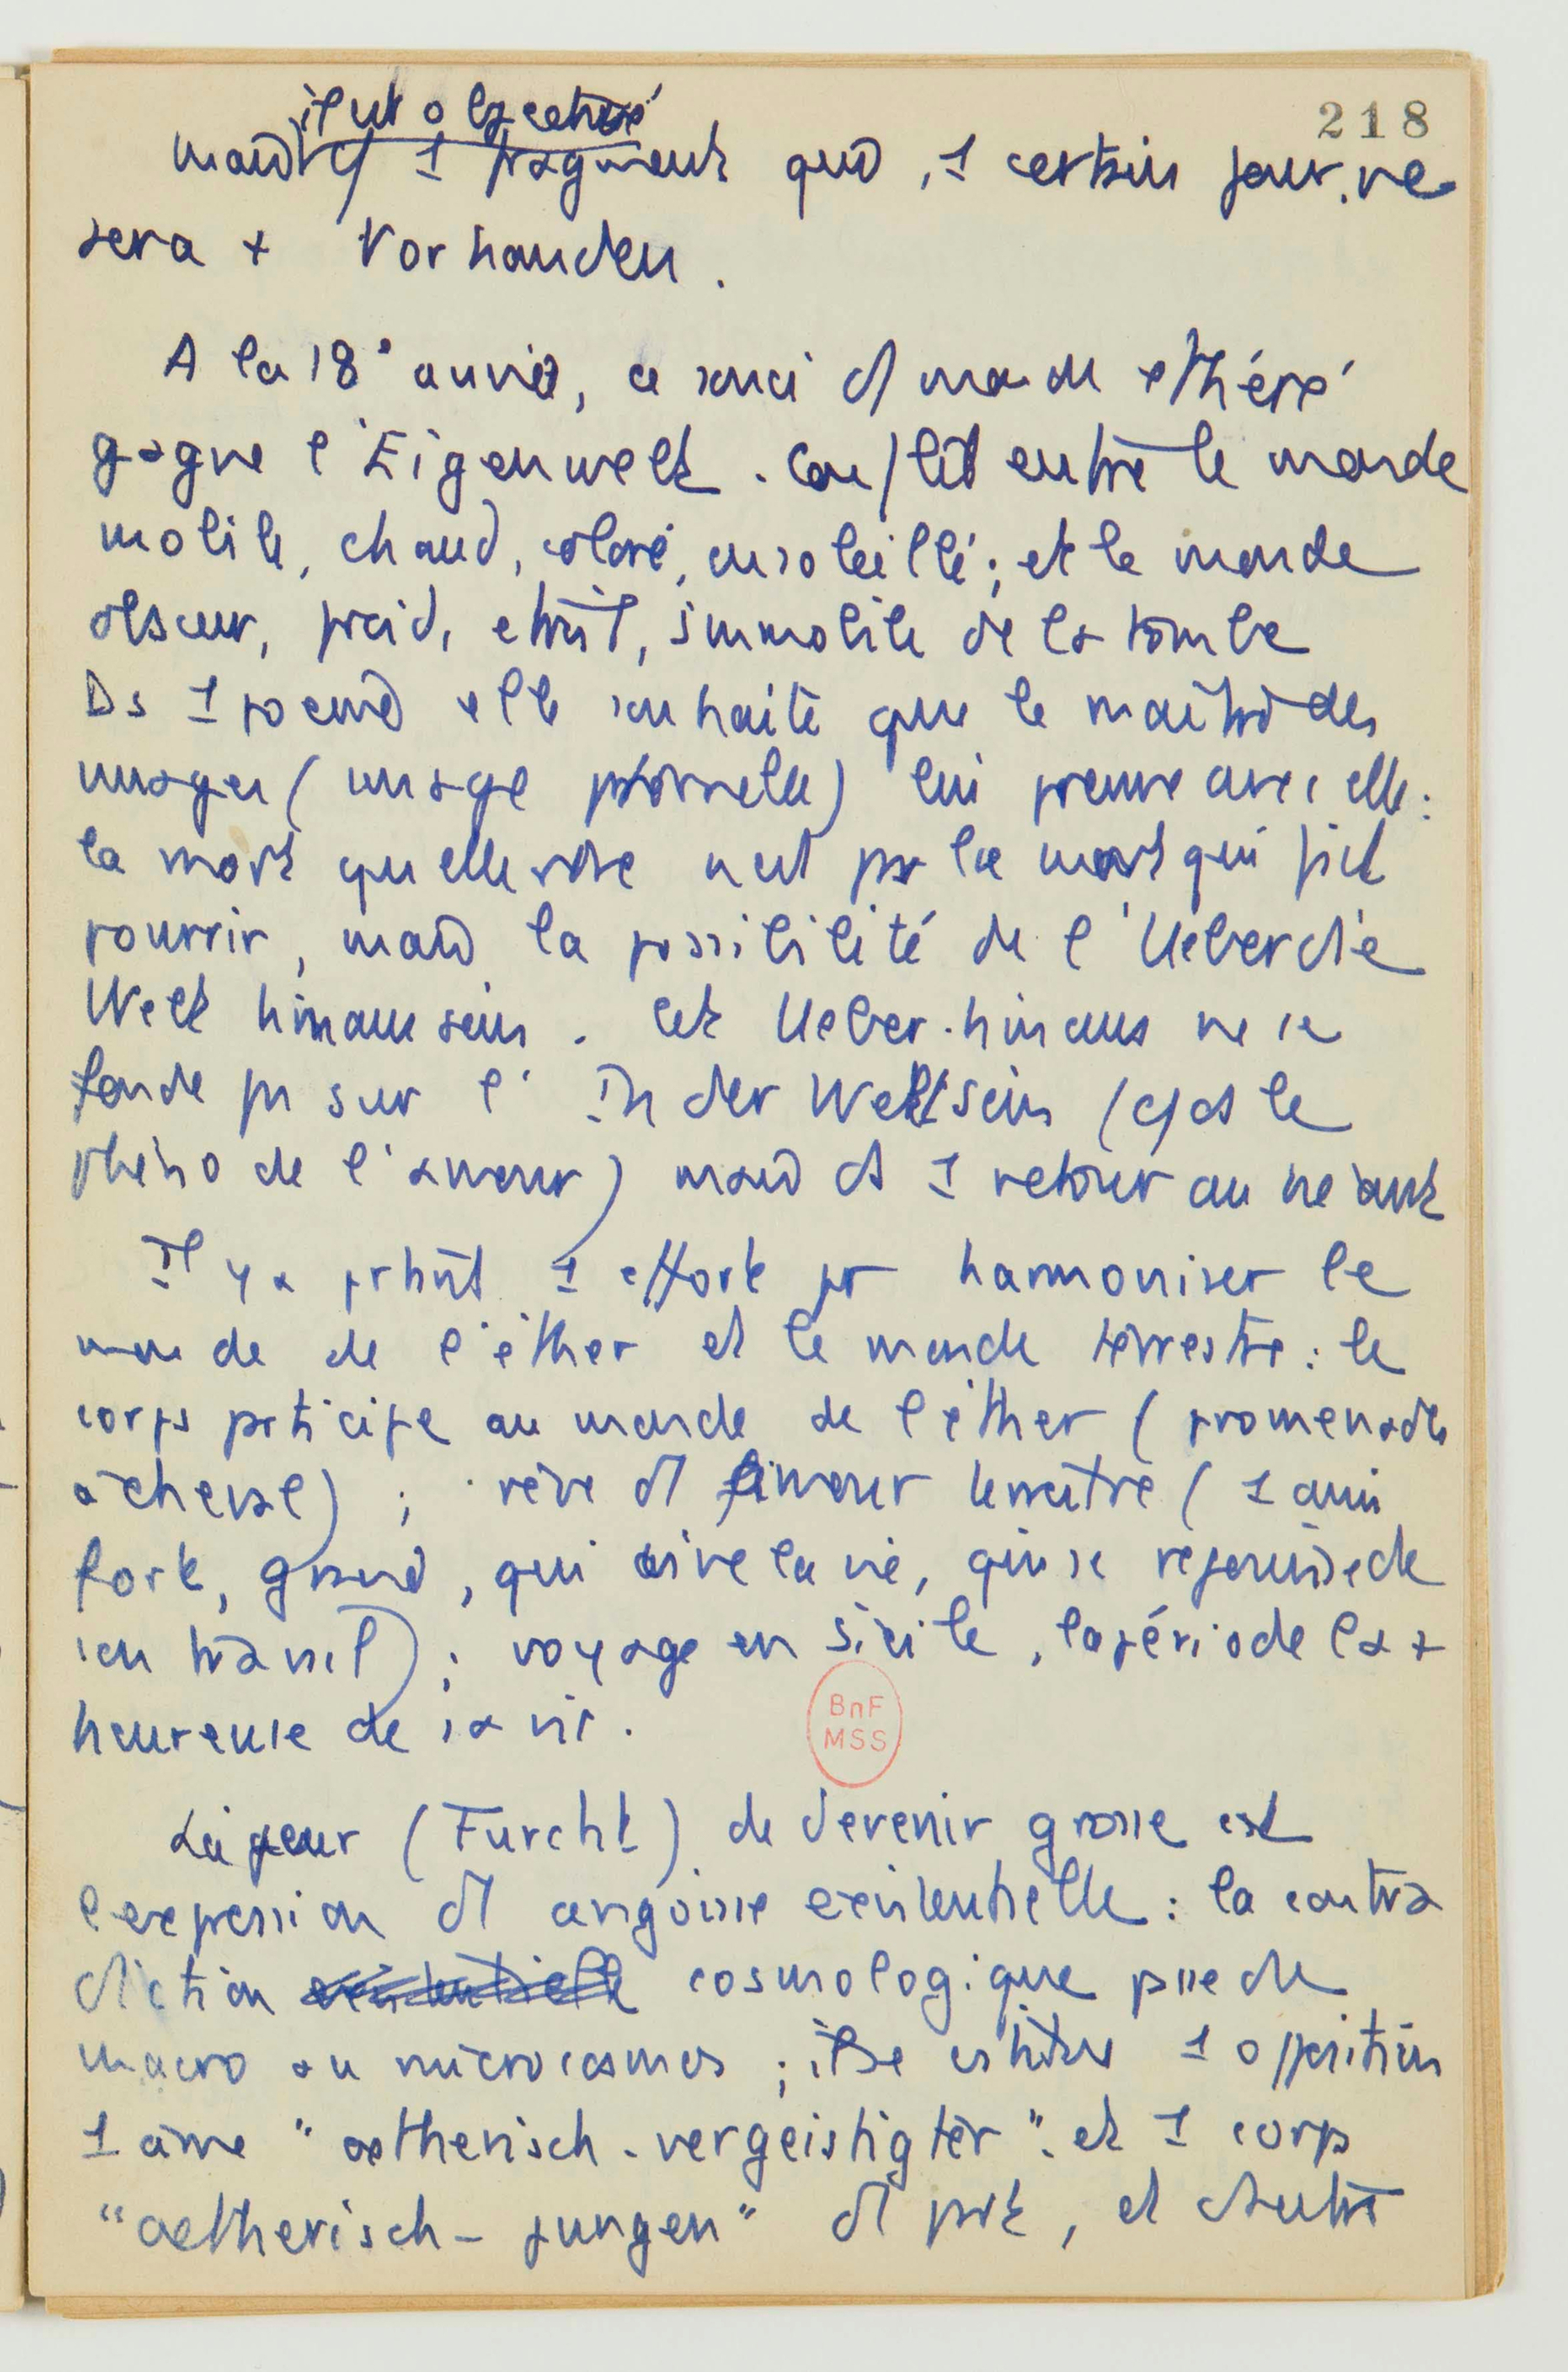 218
il est objectivé
mais c/ 1 fragment qui, 1 certain jour, ne
sera + Vorhanden.
A la 18° année, ce souci d'1 monde éthéré
gagne l'Eigenwelt. Conflit entre le monde
mobile, chaud, coloré, ensoleillé; et le monde
obscur, froid, étroit, immobile de la tombe
Ds 1 poème elle souhaite que le maître des
nuages (nuage         ) lui prenne avec elle:
la mort qu'elle rêve n'est pas la mort qui fait
pourrir, mais la possibilité de l'Ueber die
Welt hinaus sein. Cet Ueber-hinaus ne se
fonde pas sur l' In der Welt sein (c/ ds le
phéno de l'amour) mais ds 1 retour au néant
Il y a prtant 1 effort pr harmoniser le
monde de l'éther et le monde terrestre: le
corps participe au monde de l'éther (promenades
à cheval); rêve d'1 amour terrestre (1 ami
fort, grand, qui aime la vie, qui se réjouisse de
son travail); voyage en Sicile, la période la +
heureuse de sa vie.
BnF
MSS
La peur (Furcht) de devenir grosse est
l'expression d'1 angoisse existentielle: la contra
diction existentielle cosmologique passe du
macro au microcosmos; il se constitue 1 opposition
1 âme "aetherisch-vergeistigter" et 1 corps
"aetherisch-jungen" d'1 part, et d'autre